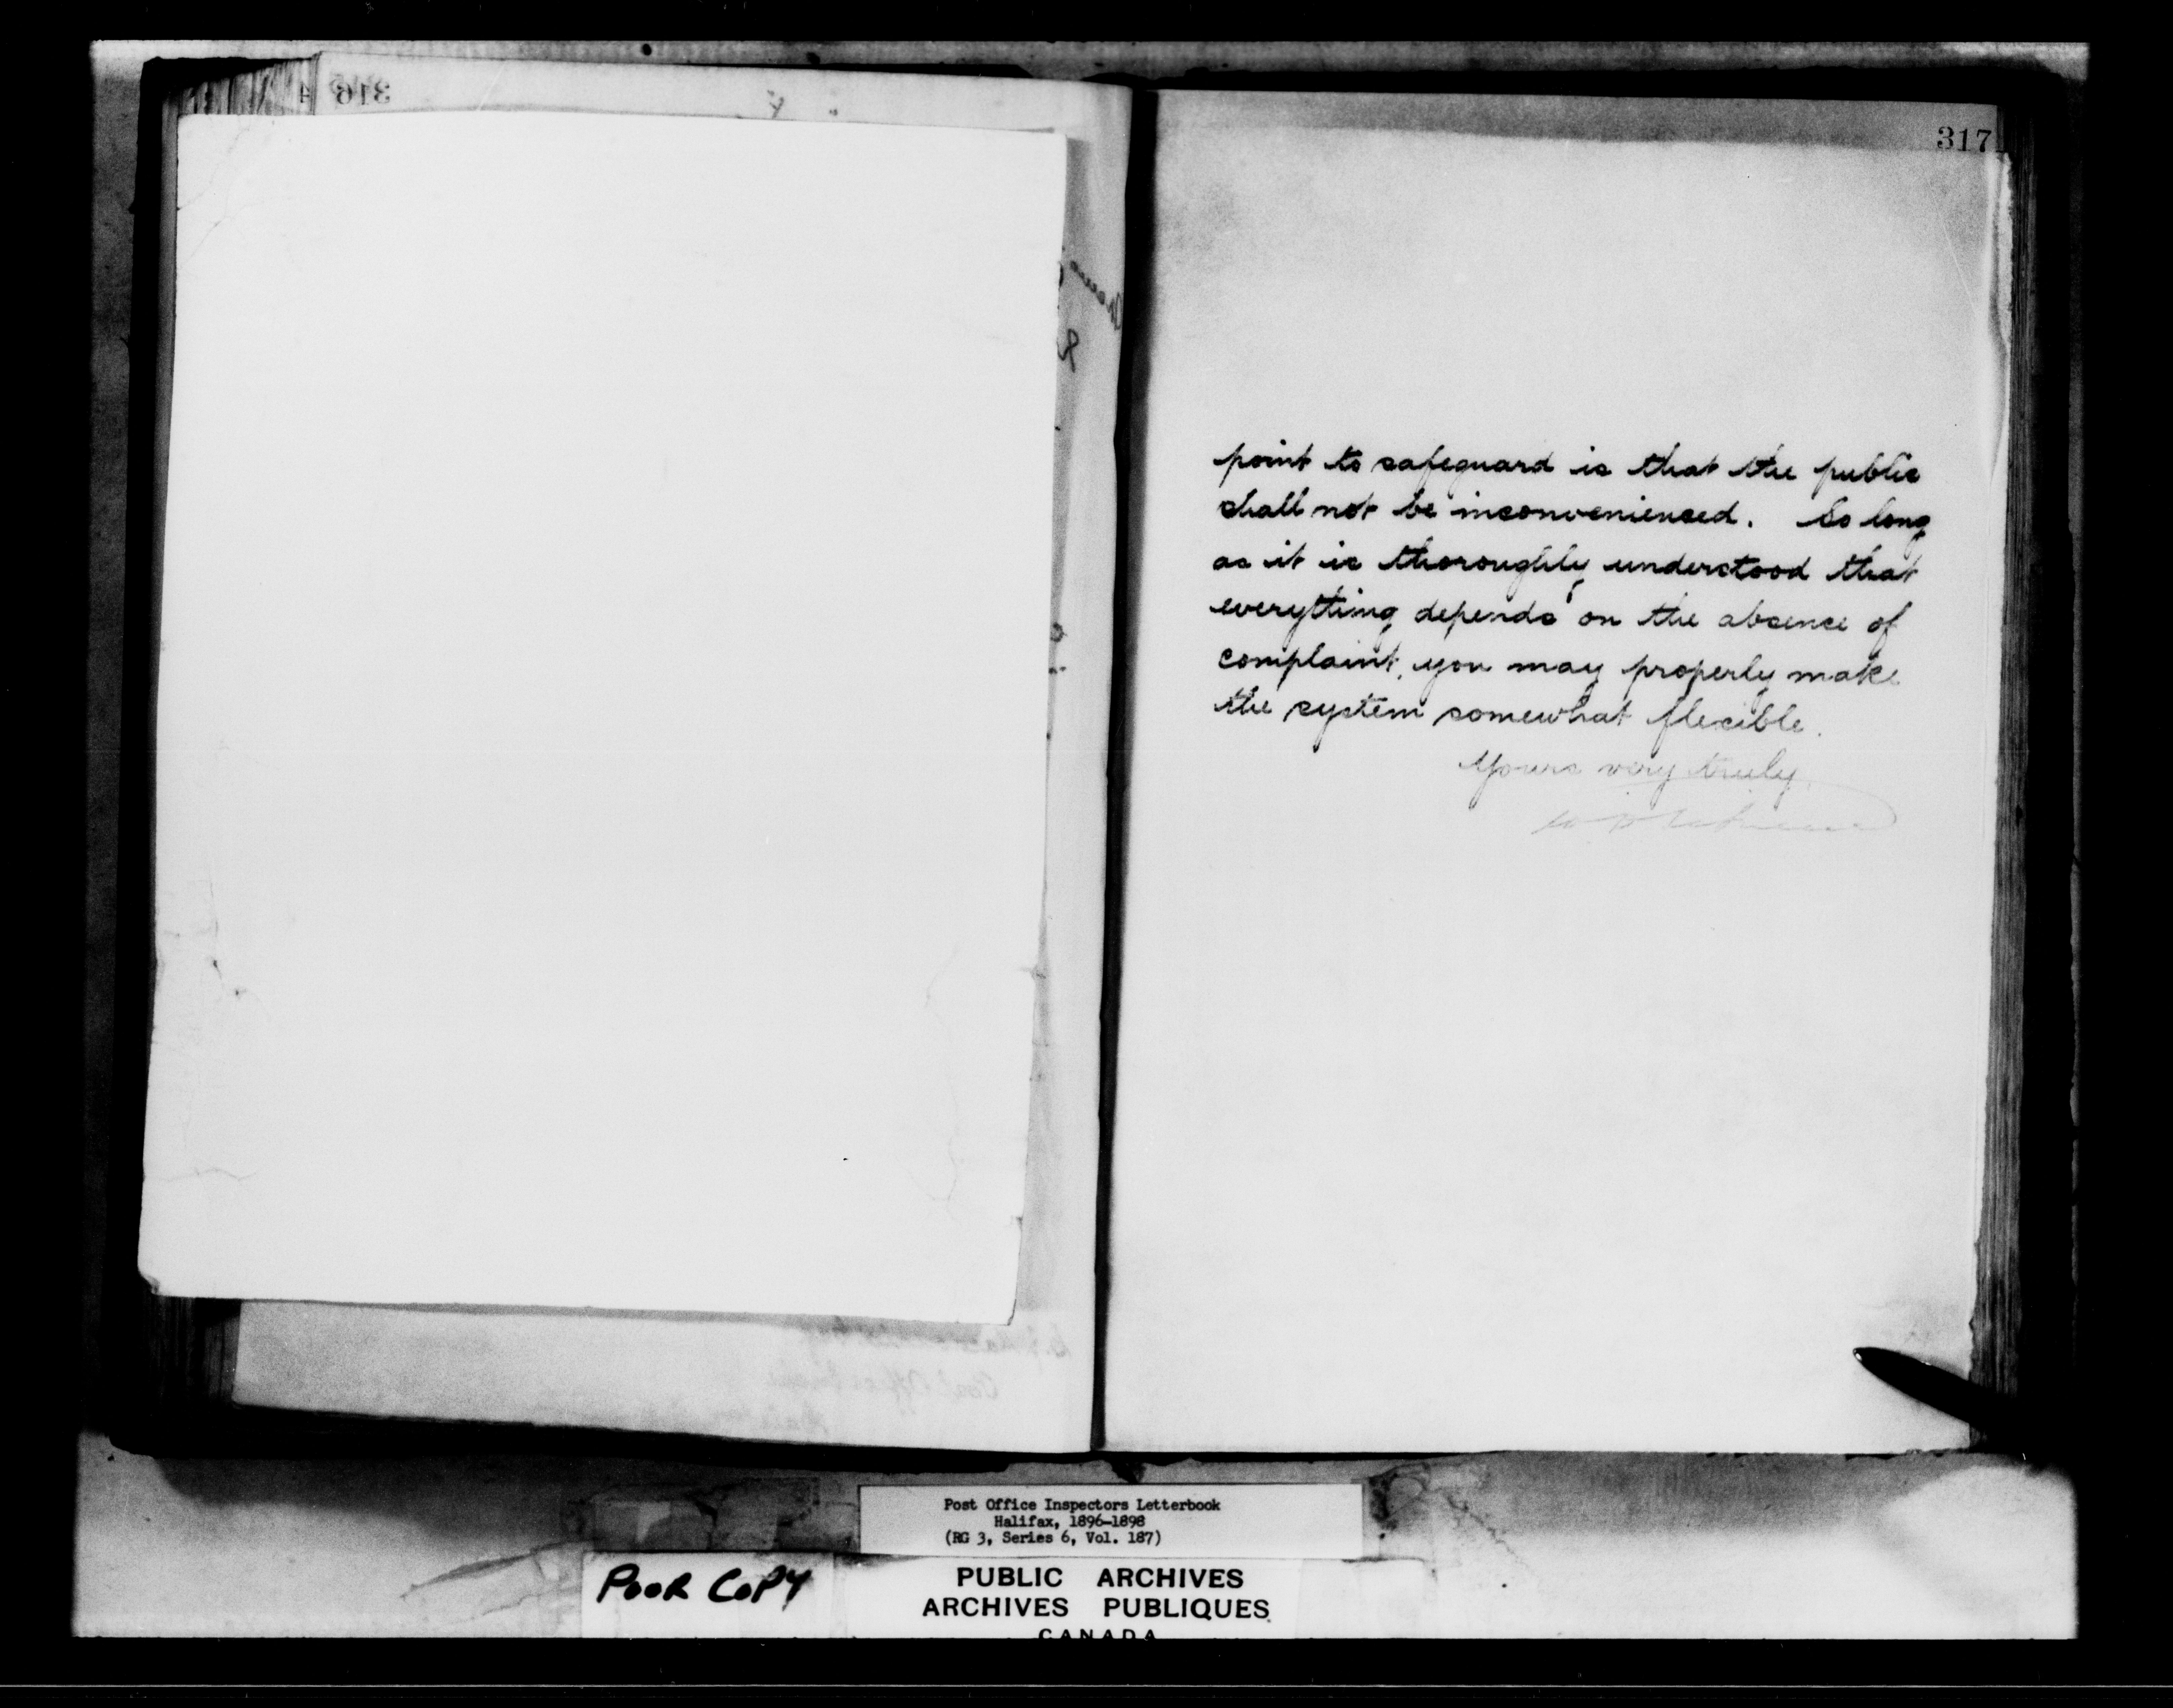 316
317
point to safeguard is that the public
shall not be inconvenienced. So long
as it is thoroughly understood that
everything depends on the absence of
complaint, you may properly make
the system somewhat flexible.
Yours very truly,
Post Office Inspectors Letterbook
Halifax, 1896-1898
(RG 3, Series 6, Vol. 187)
POOR COPY
PUBLIC ARCHIVES
ARCHIVES PUBLIQUES
CANADA